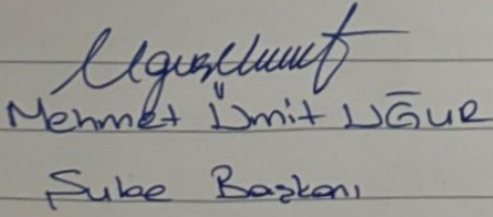 Mehmet Ümit UĞUR
Şube Başkanı